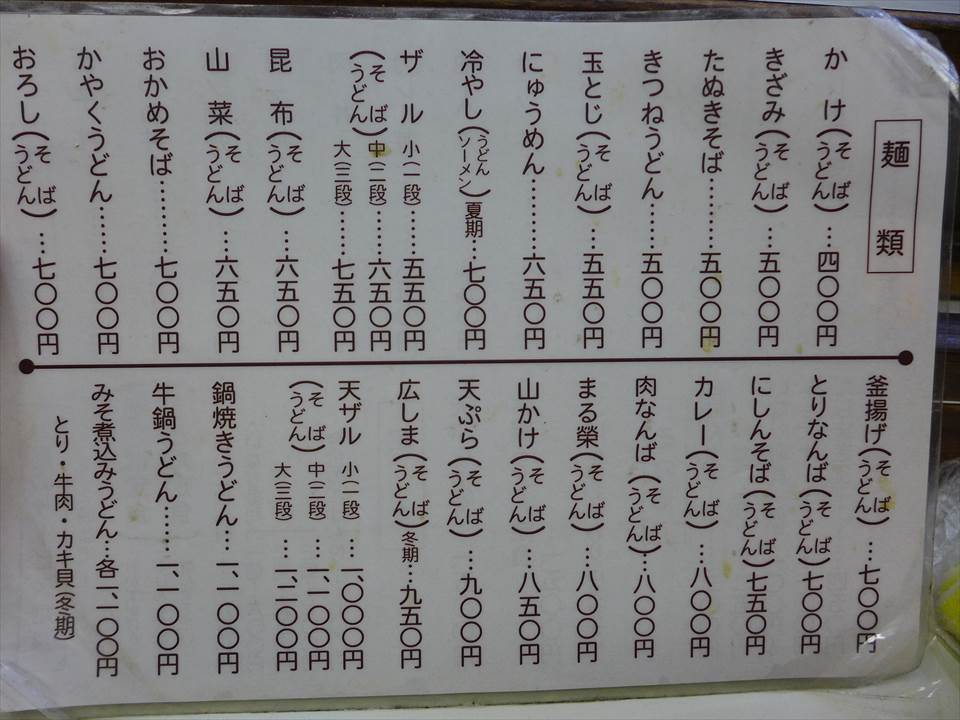 麺類
かけ(そば うどん)…四〇〇円
きざみ(そば うどん)…五〇〇円
たぬきそば………五〇〇円
きつねうどん………五〇〇円
玉とじ(そば うどん)…五五〇円
にゅうめん…………六五〇円
冷やし(うどん ソーメン)夏期…七〇〇円
ザル 小(一段)……五五〇円
(そば うどん)中(二段)……六五〇円
大(三段)……七五〇円
昆布(そば うどん)…六五〇円
山菜(そば うどん)…六五〇円
おかめそば………七〇〇円
かやくうどん……七〇〇円
おろし(そば うどん)…七〇〇円
釜揚げ(そば うどん)…七〇〇円
とりなんば(そば うどん)七〇〇円
にしんそば(そば うどん)七五〇円
カレー(そば うどん)…八〇〇円
肉なんば(そば うどん)…八〇〇円
まる榮(そば うどん)…八〇〇円
山かけ(そば うどん)…八五〇円
天ぷら(そば うどん)…九〇〇円
広しま(そば うどん)冬期…九五〇円
天ザル 小(一段)…一、〇〇〇円
(そば うどん)中(二段)…一、一〇〇円
大(三段)…一、二〇〇円
鍋焼きうどん…一、一〇〇円
牛鍋うどん……一、一〇〇円
みそ煮込みうどん…各一、一〇〇円
とり・牛肉・カキ貝(冬期)